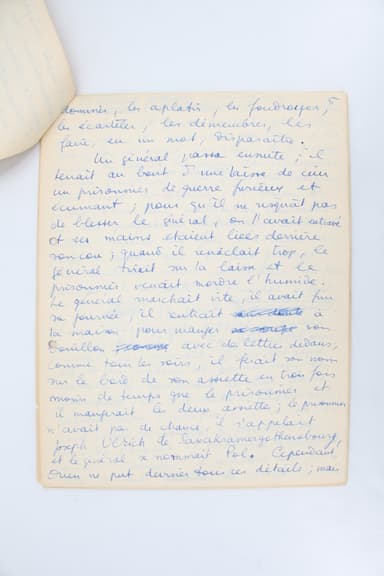 dominer, les aplatir, les foudroyer, 5
les écarteler, les démembrer, les
faire, en un mot, disparaître.
Un général passa ensuite ; il
tenait au bout d'une laisse de cuir
un prisonnier de guerre furieux et
écumant ; pour qu'il ne risquât pas
de blesser le général, on l'avait
et ses mains étaient liées derrière
son cou ; quand il renâclait trop, le
général tirait sur la laisse et le
prisonnier venait mordre l'humide.
Le général marchait vite, il avait fini
sa journée, il rentrait à
la maison pour manger son
bouillon avec des lettres dedans,
comme tous les soirs, il ferait son nom
sur le bord de son assiette en trois fois
moins de temps que le prisonnier et
il mangerait les deux assiettes ; le prisonnier
n'avait pas de chance, il s'appelait
Joseph Ulrich de
et le général se nommait Pol. Cependant,
Orien ne put deviner tous ces détails ; mais